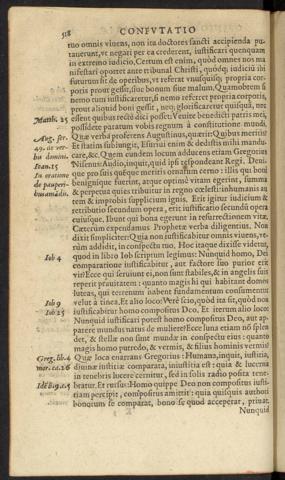 518 CONFVTATIO
tuo omnis viuens, non ita doctores sancti accipienda pu-
tauerunt, vt negari per ea crederent, iustificari quenquam
in extremo iudicio. Certum est enim, quòd omnes nos ma
nifestari oportet ante tribunal Christi, quódq; iudiciū ibi
futurum sit de operibus, vt referat vnusquisq; propria cor-
poris prout gessit, siue bonum siue malum. Quamobrem si
nemo tum iustificaretur, & nemo referret propria corporis,
prout aliquid boni gessit, neq; glorificaretur quisquā, nec
Matth. 25 essent quibus rectè dici posset: Venite benedicti patris mei,
possidete paratum vobis regnum à constitutione mundi.
Aug. ser. Quæ verba proferens Augustinus, quærit: Quibus meritis?
49. de ver Et statim subiungit, Esuriui enim & dedistis mihi mandu-
bis domini. care, &c. Quem eundem locum adducens etiam Gregorius
Ioan. 15 Nissenus: Audio, inquit, quid ipsi respondeant Regi. Deni-
In oratione que pro suis quęque meritis ornatum cerno: Illis qui boni
de pauperi- benignique fuerint, atque optimè vitam egerint, summa
bus amādis. & perpetua quies tribuitur in regno cœlesti: inhumanis au
tem & improbis supplicium ignis. Erit igitur iudicium &
retributio secundum opera, erit iustificatio secundū opera
cuiusque. Ibunt qui bona egerunt in resurrectionem vitæ.
Cæterum expendamus Prophetæ verba diligentius. Non
dixit simpliciter: Quia non iustificabitur omnis viuens, ve-
rùm addidit, in conspectu tuo. Hoc itaque dixisse videtur,
Iob 4 quod in libro Iob scriptum legimus: Nunquid homo, Dei
comparatione iustificabitur, aut factore suo purior erit
vir? Ecce qui seruiunt ei, non sunt stabiles, & in angelis suis
reperit prauitatem: quanto magis hi qui habitant domos
luteas, qui terrenum habent fundamentum consumentur
Iob 9 velut a tinea. Et alio loco: Verè scio, quòd ita sit, quòd nō
Iob 25 iustificabitur homo compositus Deo. Et iterum alio loco:
Nunquid iustificari potest homo compositus Deo, aut ap-
parere mundus natus de muliere? Ecce luna etiam nō splen
det, & stellæ non sunt mundæ in conspectu eius: quanto
magis homo putredo, & vermis, & filius hominis vermis?
Greg. lib. 4 Quæ loca enarrans Gregorius: Humana, inquit, iustitia,
diuinæ iustitiæ comparata, iniustitia est: quia & lucerna
in tenebris lucere cernitur, sed in solis radio posita tene-
bratur. Et rursus: Homo quippe Deo non compositus iusti-
tiam percipit, compositus amittit: quia quisquis authori
bonorum se comparat, bono se quod acceperat, priuat.
Nunquid